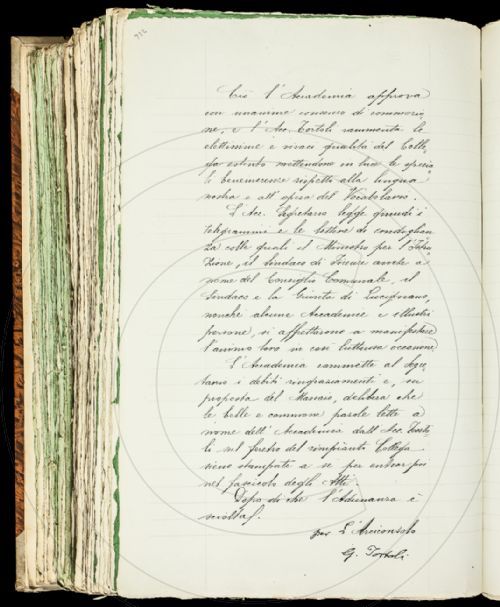 Ciò l'Accademia approva
con unanime consenso di commozio
ne, e l'Acc. Tortoli rammenta le
elettissime e vivaci qualità del Colle-
ga estinto mettendone in luce le specia
li benemerenze rispetto alla lingua
nostra e all'opera del Vocabolario.
L'Acc. Segretario legge quindi i
telegrammi e le lettere di condoglian
za colle quali il Ministro per l'Istru
zione, il Sindaco di Firenze anche a
nome del Consiglio Comunale, il
Sindaco e la Giunta di Lucignano,
nonché alcune Accademie e illustri
persone, si affrettarono a manifestare
l'animo loro in così luttuosa occasione.
L'Accademia commette al Segre
tario i debiti ringraziamenti e, su
proposta del, delibera che
le belle e commosse parole lette a
nome dell'Accademia dall'Acc. Torto-
li sul feretro del rimpianto Collega
sieno stampate a sé per entrar poi
nel fascicolo degli Atti.
Dopo di che l'Adunanza è
sciolta.
per L'Arciconsolo
G. Tortoli